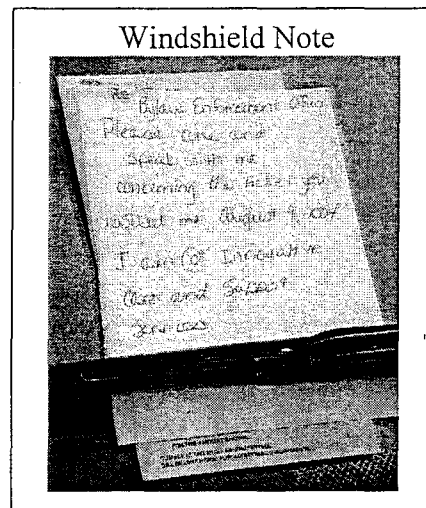 Windshield Note
Re Bylaw Enforcement Officer
Please come and
speak with me
concerning the ticket you
issued me August 9, 2004
I am @ Innovative
Care and Support
Services